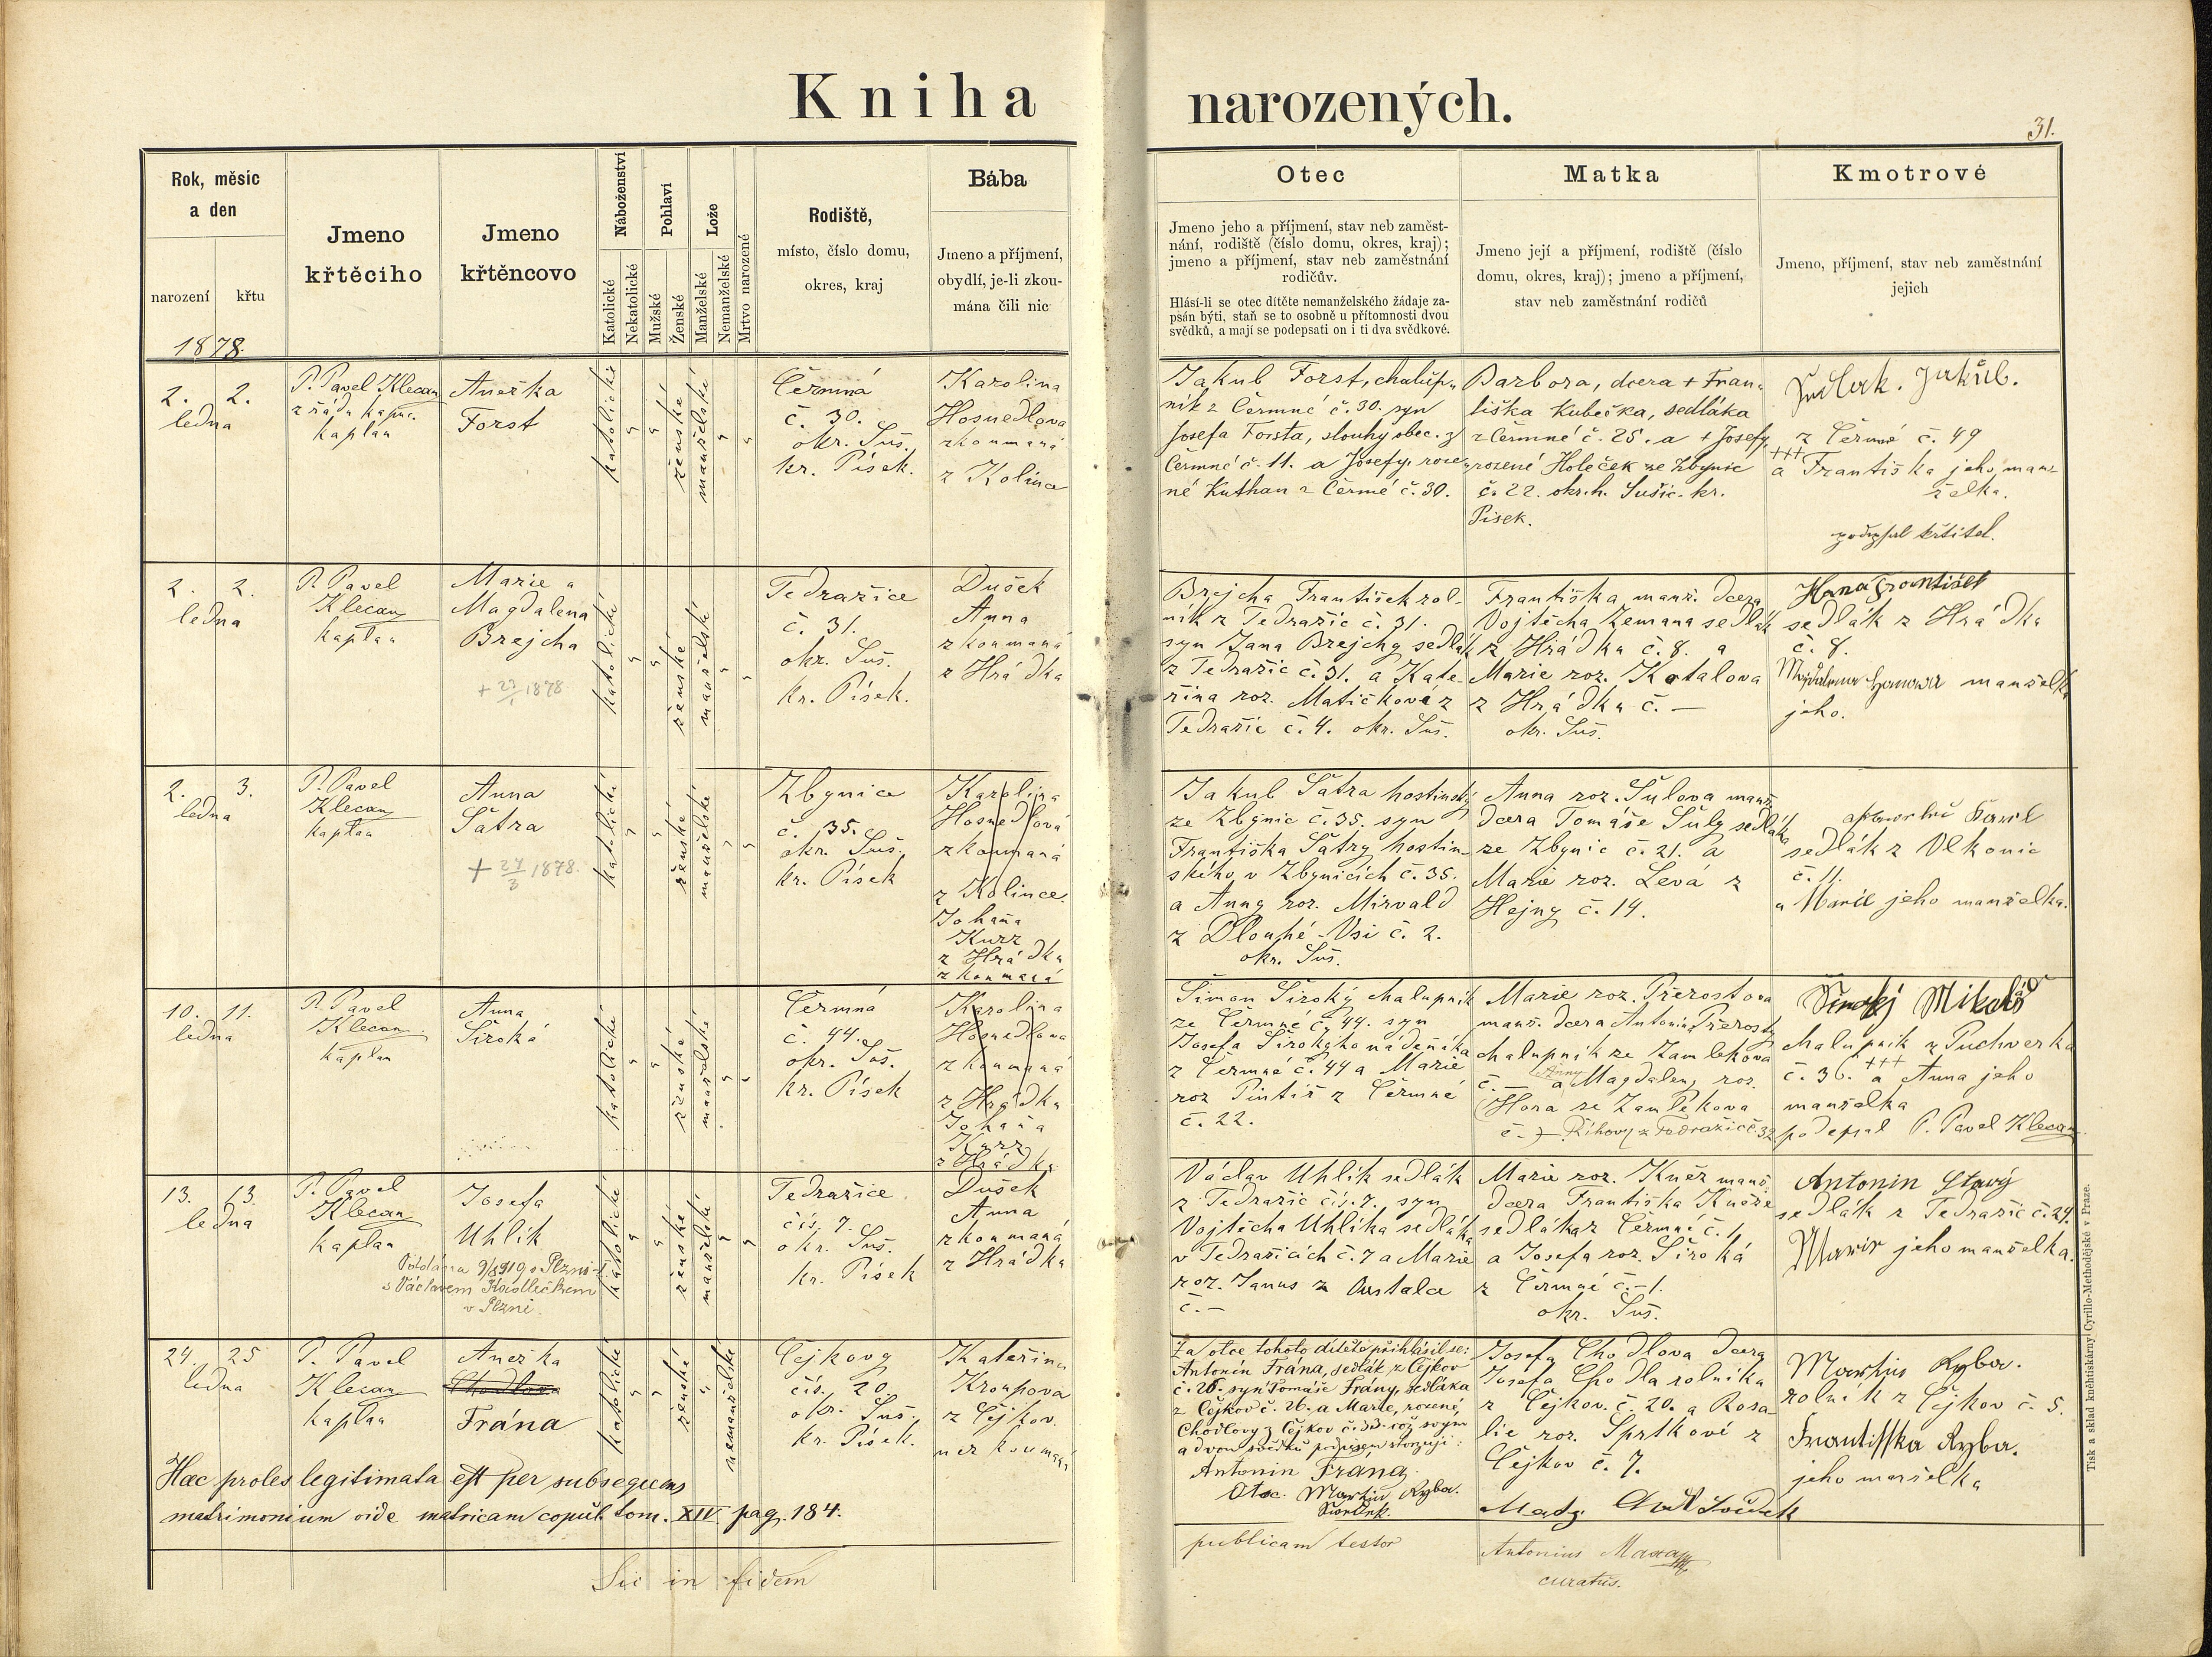 Kniha narozených.
31.
Rok, měsíc
a den
narození
křtu
1878.
Jmeno
křtěcího
Jmeno
křtěncovo
Náboženství
Katolické
Nekatolické
Pohlaví
Mužské
Ženské
Lože
Manželské
Nemanželské
Mrtvo narozené
Rodiště,
místo, číslo domu,
okres, kraj
Bába
Jmeno a příjmení,
obydlí, je-li zkou-
mána čili nic
Otec
Jmeno jeho a příjmení, stav neb zaměst-
nání, rodiště (číslo domu, okres, kraj);
jmeno a příjmení, stav neb zaměstnání
rodičův.
Hlásí-li se otec dítěte nemanželského žádaje za-
psán býti, staň se to osobně u přítomnosti dvou
svědků, a mají se podepsati on i ti dva svědkové.
Matka
Jmeno její a příjmení, rodiště (číslo
domu, okres, kraj); jmeno a příjmení,
stav neb zaměstnání rodičů
Kmotrové
Jmeno, příjmení, stav neb zaměstnání
jejich
2. 2.
ledna
P. Pavel Klecan
z řádu kapuc.
kaplan
Anežka
Forst
katolické
ženské
manželské
Čermná
č. 30.
okr. Suš.
kr. Písek.
Karolina
Hosnedlova
zkoumaná
z Kolince
Jakub Forst, chalup-
ník z Čermné č. 30. syn
Josefa Forsta, slouhy obec. z
Čermné č. 11. a Josefy, roze-
né Kuthan z Čermé č. 30.
Barbora, dcera + Fran-
tiška Kubečka, sedláka
z Čermné č. 25. a + Josefy,
rozené Holeček ze Zbynic
č. 22. okr. h. Sušic. kr.
Písek.
Jakub.
z Čermné č. 49
+++
a Františka jeho man-
želka.
podepsal křtitel.
2. 2.
ledna
P. Pavel
Klecan
kaplan
Marie a
Magdalena
Brejcha
+ 27/1 1878
katolické
ženské
manželské
Tedražice
č. 31.
okr. Suš.
kr. Písek.
Dušek
Anna
zkoumaná
z Hrádka
Brejcha František rol-
ník z Tedražic č. 31.
syn Jana Brejchy sedlák
z Tedražic č. 31. a Kate-
řina roz. Matičková z
Tedražic č. 4. okr. Suš.
Františka manž. dcera
Vojtěcha Zemana sedlák
z Hrádka č. 8. a
Marie roz. Kotalova
z Hrádka č. —
okr. Suš.
Hana František
sedlák z Hrádka
č. 8.
Magdalena Hanowa manželka
jeho.
2. 3.
ledna
P. Pavel
Klecan
kaplan
Anna
Šatra
+ 27/3 1878.
katolické
ženské
manželské
Zbynice
č. 35.
okr. Suš.
kr. Písek
Karolina
Hosnedlová
zkoumaná
z Kolince.
Johana
Kurz
z Hrádku
zkoumaná
Jakub Šatra hostinský
ze Zbynic č. 35. syn
Františka Šatry hostin-
ského v Zbynicích č. 35.
a Anny roz. Mirvald
z Dlouhé-Vsi č. 2.
okr. Suš.
Anna roz. Šulova manž.
dcera Tomáše Šuly sedláka
ze Zbynic č. 21. a
Marie roz. Levá z
Hejny č. 14.
sedlák z Vlkonic
č. 11.
a Marie jeho manželka.
10. 11.
ledna
P. Pavel
Klecan
kaplan
Anna
Široká
katolické
ženské
manželské
Čermná
č. 44.
okr. Suš.
kr. Písek
Karolina
Hosnedlova
zkoumaná
z Hrádku
Johana
Kurz
z Hrádku
Šimon Široký chalupník
ze Čermné č. 44. syn
Josefa Širokýho nádeníka
z Čermné č. 44 a Marie
roz Pintíř z Čermné
č. 22.
Marie roz. Přerostova
manž. dcera Antonin Přerosty
chalupník ze Zamlekova
Anny
č. — a Magdaleny roz.
(Hora ze Zamlekova
č. —) Říhovy z Tedražic č. 32
Široký Mikoláš
chalupník z Puchverka
č. 36. +++ a Anna jeho
manželka
podepsal P. Pavel Klecan
13. 13.
ledna
P. Pavel
Klecan
kaplan
Josefa
Uhlík
Oddána 9/8 1919 v Plzni
s Václavem Kadlečkem
v Plzni.
katolické
ženské
manželské
Tedražice
čís. 7.
okr. Suš.
kr. Písek
Dušek
Anna
zkoumaná
z Hrádka
Václav Uhlík sedlák
z Tedražic čís. 7. syn
Vojtěcha Uhlíka sedláka
v Tedražicích č. 7 a Marie
roz. Janus z
č. —
Marie roz. Kněz manž.
dcera Františka Kněze
sedláka z Čermné č. 1.
a Josefa roz. Široká
z Čermné č. —1.
okr. Suš.
Antonin Starý
sedlák z Tedražic č. 24.
Marie jeho manželka.
24. 25
ledna
P. Pavel
Klecan
kaplan
Anežka
Chodlova
Frána
katolické
ženské
nemanželské
Čejkovy
čís. 20.
okr. Suš.
kr. Písek.
Kateřina
Kroupova
z Čejkov.
nezkoumaná
Za otce tohoto dítěte přihlásil se:
Antonín Frána, sedlák z Čejkov
č. 26. syn Tomáše Frány, sedláka
z Čejkov č. 26. a Marie, rozené
Chodlovy z Čejkov č. 33. což svým
a dvou svědků podpisem stvrzují:
Antonin Frána
Otec. Martin Ryba.
Svědek.
Josefa Chodlova dcera
Josefa Chodla rolníka
z Čejkov. č. 20. a Rosa-
lie roz. Sprtkové z
Čejkov č. 7.
Martin Ryba.
rolník z Čejkov č. 5.
Frantisska Ryba.
jeho manželka
Hæc proles legitimata est per subsequens
matrimonium vide matricam copul. tom. XIV pag. 184.
Sic in fidem publicam testor
Antonius Maxa
curatus.
Tisk a sklad kněhtiskárny Cyrillo-Methodějské v Praze.